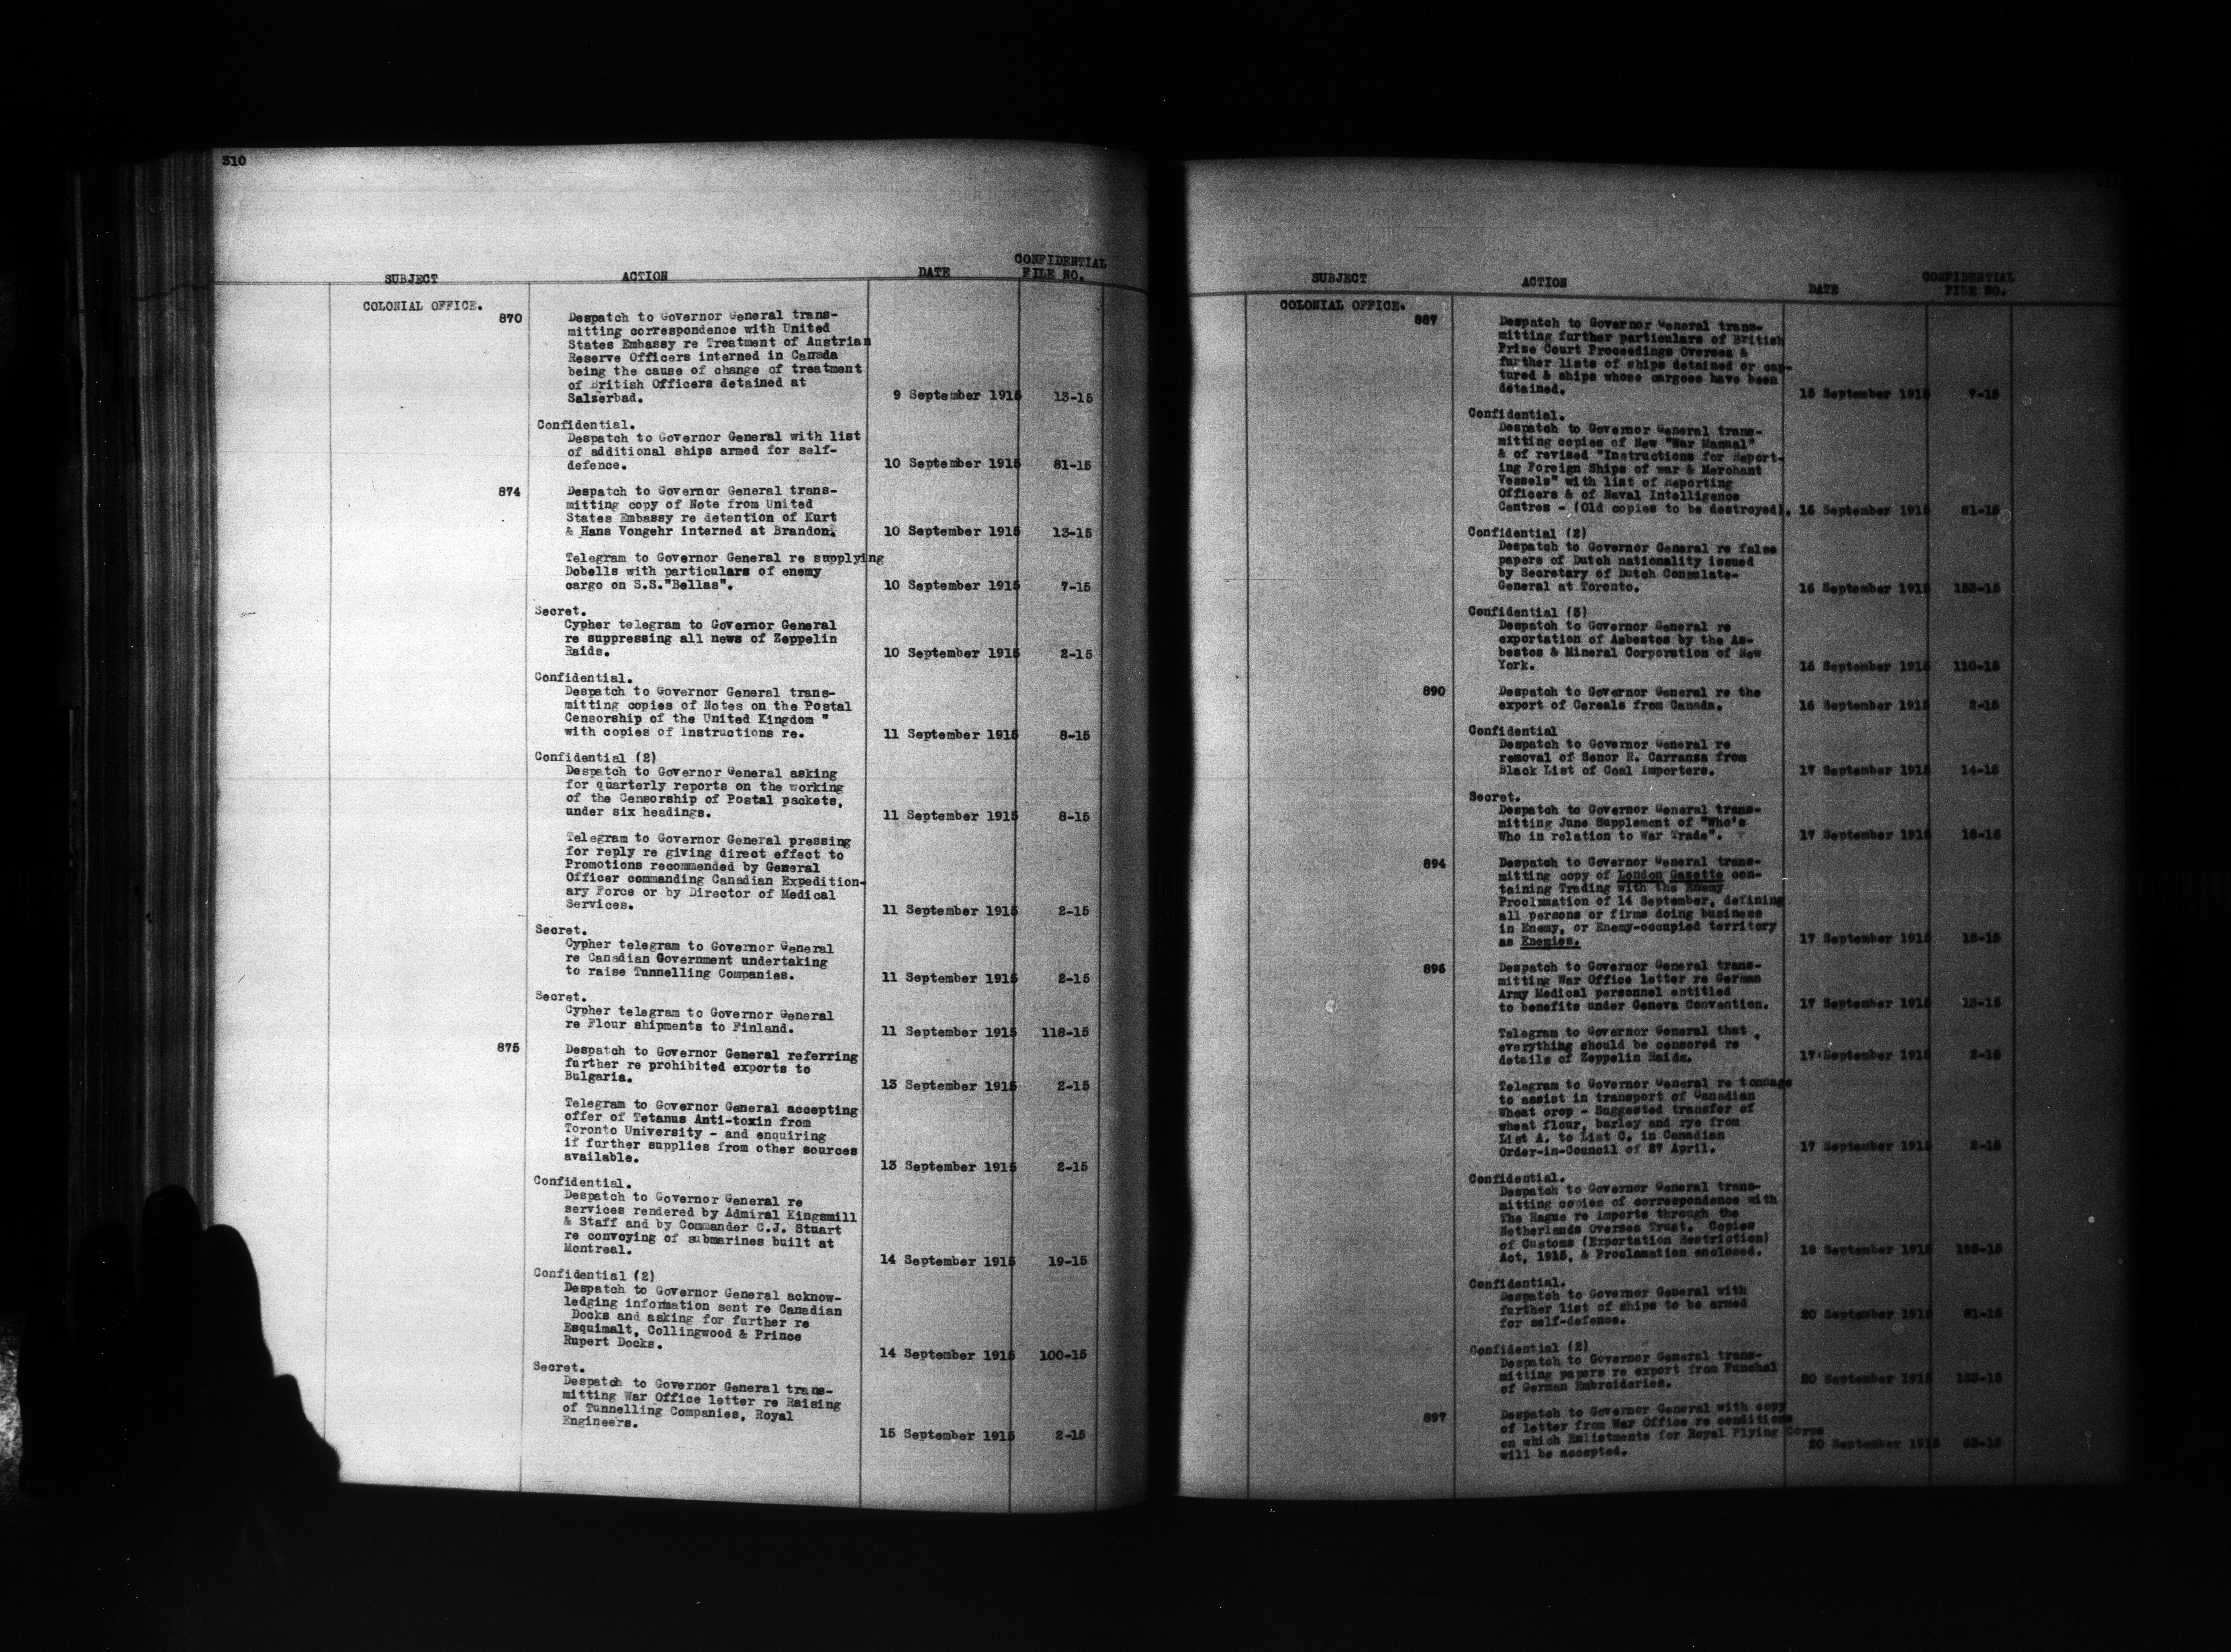 310
SUBJECT ACTION DATE CONFIDENTIAL FILE NO.
COLONIAL OFFICE.
870 Despatch to Governor General trans-
mitting correspondence with United
States Embassy re Treatment of Austrian
Reserve Officers interned in Canada
being the cause of change of treatment
of British Officers detained at
Salzerbad. 9 September 1915 13-15
Confidential.
Despatch to Governor General with list
of additional ships armed for self-
defence. 10 September 1915 81-15
874 Despatch to Governor General trans-
mitting copy of Note from United
States Embassy re detention of Kurt
& Hans Vongehr interned at Brandon. 10 September 1915 13-15
Telegram to Governor General re supplying
Dobells with particulars of enemy
cargo on S.S."Bellas". 10 September 1915 7-15
Secret.
Cypher telegram to Governor General
re suppressing all news of Zeppelin
Raids. 10 September 1915 2-15
Confidential.
Despatch to Governor General trans-
mitting copies of Notes on the Postal
Censorship of the United Kingdom "
with copies of Instructions re. 11 September 1915 8-15
Confidential (2)
Despatch to Governor General asking
for quarterly reports on the working
of the Censorship of Postal packets,
under six headings. 11 September 1915 8-15
Telegram to Governor General pressing
for reply re giving direct effect to
Promotions recommended by General
Officer commanding Canadian Expedition-
ary Force or by Director of Medical
Services. 11 September 1915 2-15
Secret.
Cypher telegram to Governor General
re Canadian Government undertaking
to raise Tunnelling Companies. 11 September 1915 2-15
Secret.
Cypher telegram to Governor General
re Flour shipments to Finland. 11 September 1915 118-15
875 Despatch to Governor General referring
further re prohibited exports to
Bulgaria. 13 September 1915 2-15
Telegram to Governor General accepting
offer of Tetanus Anti-toxin from
Toronto University - and enquiring
if further supplies from other sources
available. 13 September 1915 2-15
Confidential.
Despatch to Governor General re
services rendered by Admiral Kingsmill
& Staff and by Commander C.J. Stuart
re convoying of submarines built at
Montreal. 14 September 1915 19-15
Confidential (2)
Despatch to Governor General acknow-
ledging information sent re Canadian
Docks and asking for further re
Esquimalt, Collingwood & Prince
Rupert Docks. 14 September 1915 100-15
Secret.
Despatch to Governor General trans-
mitting War Office letter re Raising
of Tunnelling Companies, Royal
Engineers. 15 September 1915 2-15
SUBJECT ACTION DATE CONFIDENTIAL FILE NO.
COLONIAL OFFICE.
887 Despatch to Governor General trans-
mitting further particulars of British
Prize Court Proceedings Oversea &
further lists of ships detained or cap-
tured & ships whose cargoes have been
detained. 15 September 1915 7-15
Confidential.
Despatch to Governor General trans-
mitting copies of New "War Manual"
& of revised "Instructions for Report-
ing Foreign Ships of war & Merchant
Vessels" with list of Reporting
Officers & of Naval Intelligence
Centres - (Old copies to be destroyed). 16 September 1915 81-15
Confidential (2)
Despatch to Governor General re false
papers of Dutch nationality issued
by Secretary of Dutch Consulate-
General at Toronto. 16 September 1915
Confidential (3)
Despatch to Governor General re
exportation of Asbestos by the As-
bestos & Mineral Corporation of New
York. 16 September 1915 110-15
890 Despatch to Governor General re the
export of Cereals from Canada. 16 September 1915 2-15
Confidential
Despatch to Governor General re
removal of Senor R. Carranza from
Black List of Coal Importers. 17 September 1915 14-15
Secret.
Despatch to Governor General trans-
mitting June Supplement of "Who's
Who in relation to War Trade". 17 September 1915
894 Despatch to Governor General trans-
mitting copy of London Gazette con-
taining Trading with the Enemy
Proclamation of 14 September, defining
all persons or firms doing business
in Enemy, or Enemy-occupied territory
as Enemies. 17 September 1915
896 Despatch to Governor General trans-
mitting War Office letter re German
Army Medical personnel entitled
to benefits under Geneva Convention. 17 September 1915 13-15
Telegram to Governor General that
everything should be censored re
details of Zeppelin Raids. 17 September 1915 2-15
Telegram to Governor General re tonnage
to assist in transport of Canadian
Wheat crop - Suggested transfer of
wheat flour, barley and rye from
List A. to List C. in Canadian
Order-in-Council of 27 April. 17 September 1915 2-15
Confidential.
Despatch to Governor General trans-
mitting copies of correspondence with
The Hague re imports through the
Netherlands Oversea Trust. Copies
of Customs (Exportation Restriction)
Act, 1915, & Proclamation enclosed. 18 September 1915 195-15
Confidential.
Despatch to Governor General with
further list of ships to be armed
for self-defence. 20 September 1915 81-15
Confidential (2)
Despatch to Governor General trans-
mitting papers re export from Funchal
of German Embroideries. 20 September 1915
897 Despatch to Governor General with copy
of letter from War Office re conditions
on which Enlistments for Royal Flying Corps
will be accepted. 20 September 1915